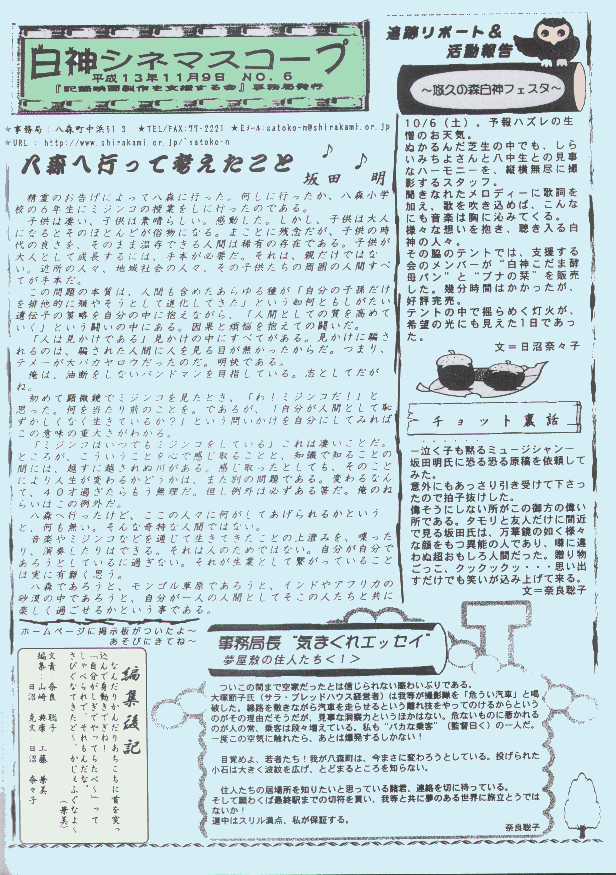 白神シネマスコープ
平成13年11月9日 NO.6
『記録映画製作を支援する会』事務局発行
★事務局:八森町中浜513 ★TEL/FAX:77-2221 ★Eメール:satoko-n@shirakami.or.jp
★URL : http://www.shirakami.or.jp/~satoko-n
八森へ行って考えたこと
坂田 明
精霊のお告げによって八森に行った。何しに行ったか、八森小学
校の6年生にミジンコの授業をしに行ったのである。
子供は凄い、子供は素晴らしい。感動した。しかし、子供は大人
になるとそのほとんどが俗物になる。まことに残念だが、子供の時
代の良さを、そのまま温存できる人間は稀有の存在である。子供が
大人として成長するには、手本が必要だ。それは、親だけではな
い。近所の人々、地域社会の人々、その子供たちの周囲の人間すべ
てが手本だ。
この問題の本質は、人間も含めたあらゆる種が「自分の子孫だけ
を排他的に殖やそうとして進化してきた」という如何ともしがたい
遺伝子の策略を自分の中に抱えながら、「人間としての質を高めて
いく」という闘いの中にある。因果と煩悩を抱えての闘いだ。
「人は見かけである」見かけの中にすべてがある。見かけに騙さ
れるのは、騙された人間に人を見る目が無かったからだ。つまり、
テメーが大バカヤロウだったのだ。明快である。
俺は、油断をしないバンドマンを目指している。志としてだが
ね。
初めて顕微鏡でミジンコを見たとき、「わ!ミジンコだ!」と
思った。何を当たり前のことを。であるが、「自分が人間として恥
ずかしくなく生きているか?」という問いかけを自分にしてみれば
この意味の重大さがわかる。
「ミジンコはいつでもミジンコをしている」これは凄いことだ。
ところが、こういうことを心で感じ取ることと、知識で知ることの
間には、越すに越されぬ川がある。感じ取ったとしても、そのこと
により人生が変わるかどうかは、また別の問題である。変わるなん
て、40才過ぎたらもう無理だ。但し例外は必ずある筈だ。俺のね
らいはこの例外だ。
八森へ行ったけど、ここの人々に何がしてあげられるかという
と、何も無い。そんな奇特な人間ではない。
音楽やミジンコなどを通じて生きてきたことの上澄みを、喋った
り、演奏したりはできる。それは人のためではない。自分が自分で
あろうとしているに過ぎない。それが生業として繋がっていること
は実に有難く思う。
八森であろうと、モンゴル草原であろうと、インドやアフリカの
砂漠の中であろうと、自分が一人の人間としてそこの人たちと共に
楽しく過ごせるかという事である。
ホームページに掲示板がついたよ~
あそびにきてね~
追跡リポート&
活動報告
~悠久の森白神フェスタ~
10/6(土)。予報ハズレの生
憎のお天気。
ぬかるんだ芝生の中でも、しら
いみちよさんと八中生との見事
なハーモニーを、縦横無尽に撮
影するスタッフ。
聞きなれたメロディーに歌詞を
加え、歌を吹き込めば、こんな
にも音楽は胸に沁みてくる。
様々な想いを抱き、聴き入る白
神の人々。
その脇のテントでは、支援する
会のメンバーが“白神こだま酵
母パン”と“ブナの葉”を販売
した。幾分時間はかかったが、
好評完売。
テントの中で揺らめく灯火が、
希望の光にも見えた1日であっ
た。
文=日沼奈々子
チョット裏話
―泣く子も黙るミュージシャン―
坂田明氏に恐る恐る原稿を依頼して
みた。
意外にもあっさり引き受けて下さっ
たので拍子抜けした。
偉そうにしない所がこの御方の偉い
所である。タモリと友人だけに間近
で見る坂田氏は、万華鏡の如く様々
な顔をもつ異能の人であり、噂に違
わぬ超おもしろ人間だった。贈り物
ごっこ、クックックッ・・・思い出
すだけでも笑いが込み上げて来る。
文=奈良聡子
事務局長“気まぐれエッセイ”
夢屋敷の住人たち<1>
ついこの間まで空家だったとは信じられない賑わいぶりである。
大塚節子氏(サラ・ブレッドハウス経営者)は我等が撮影隊を「危うい汽車」と喝
破した。線路を敷きながら汽車を走らせるという離れ技をやってのけるからという
のがその理由だそうだが、見事な洞察力というほかはない。危ないものに惹かれる
のが人の常、乗客は段々増えている。私も“バカな乗客”(監督曰く)の一人だ。
一度この空気に触れたら、あとは爆発するしかない!
目覚めよ、若者たち!我が八森町は、今まさに変わろうとしている。投げられた
小石は大きく波紋を広げ、とどまるところを知らない。
住人たちの居場所を知りたいと思っている諸君、連絡を切に待っている。
そして願わくば最終駅までの切符を買い、我等と共に夢のある世界に旅立とうでは
ないか!
道中はスリル満点、私が保証する。
奈良聡子
編集後記
なんだりかんだりあちこちに首を突っ
込んで身動きできねども、